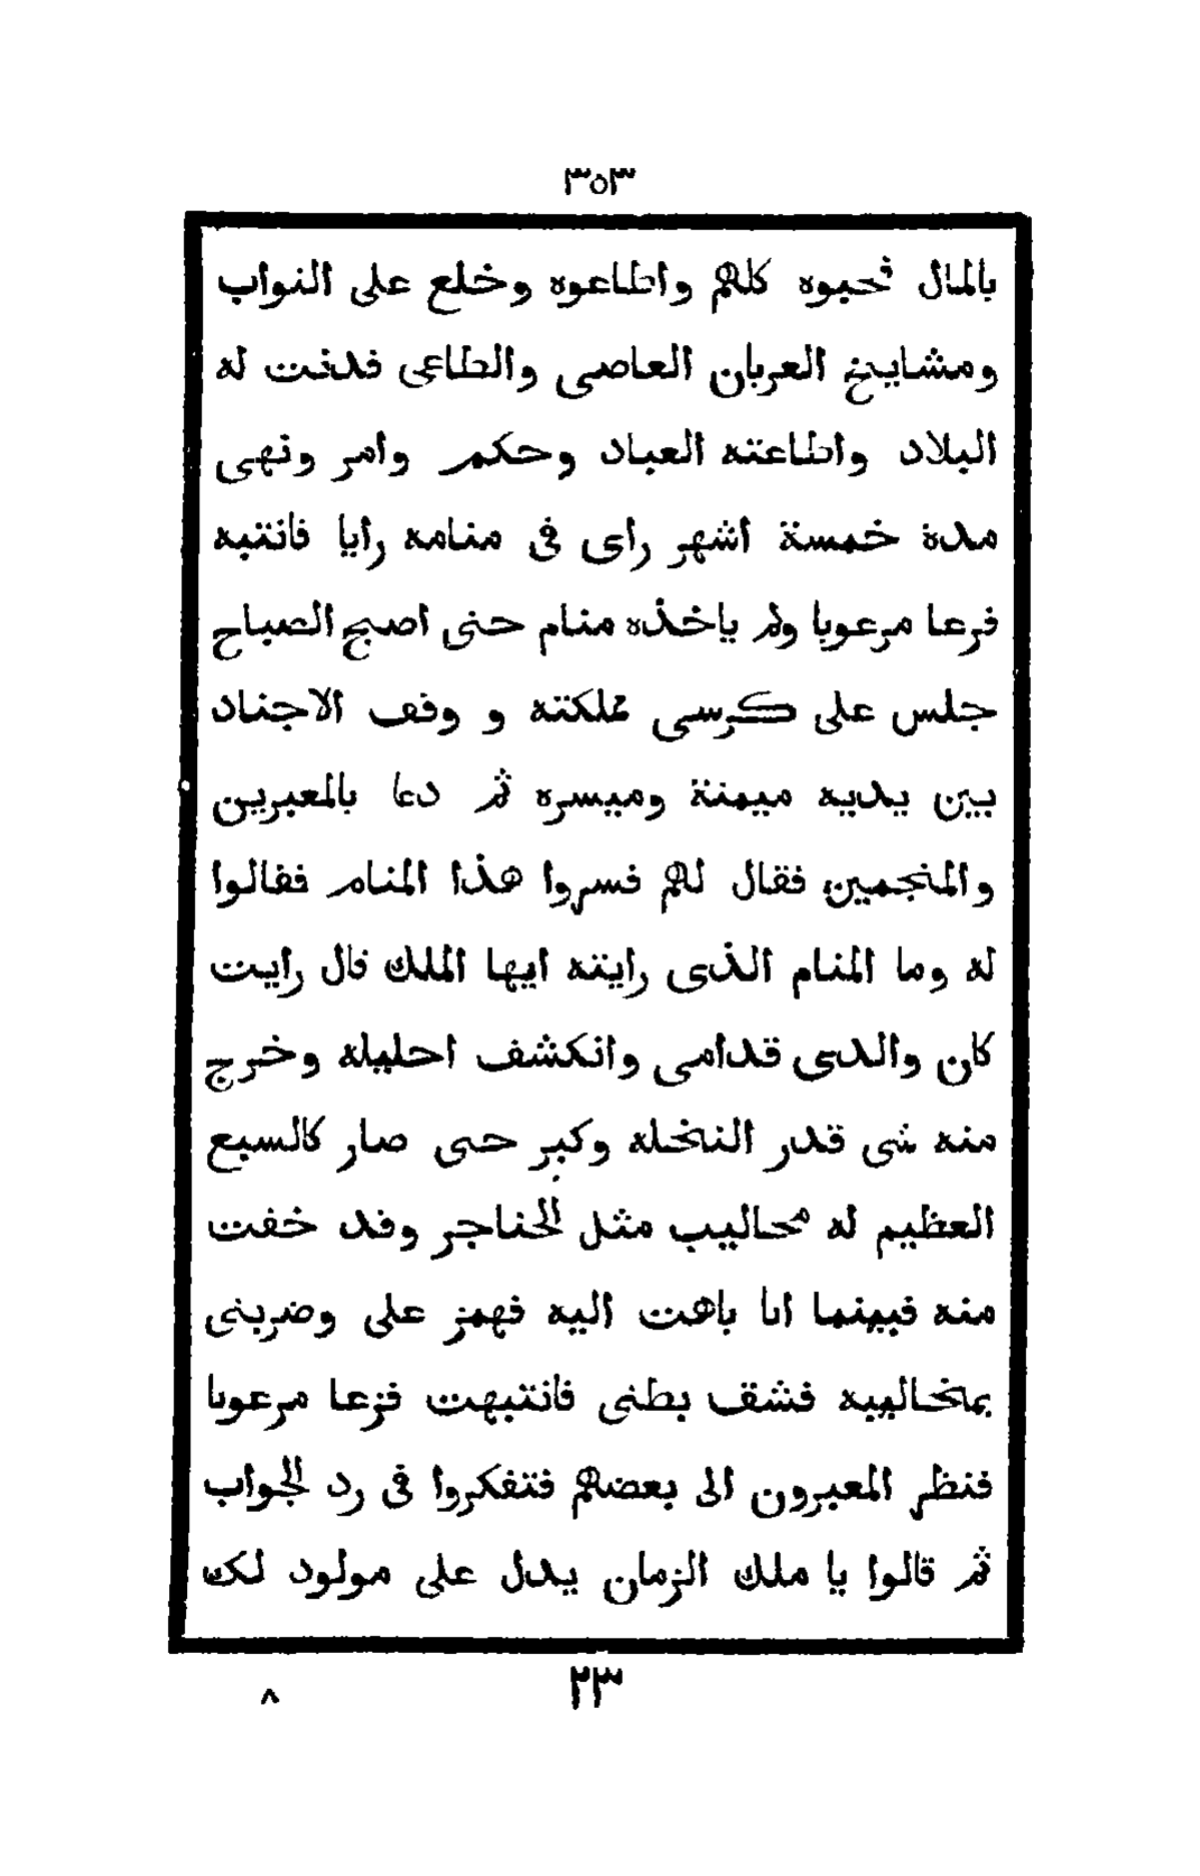 ٣٥٣
بالمال فحبوه كلهم واطاعوه وخلع على النواب
ومشايخ العربان العاصى والطاعى فدنت له
البلاد واطاعته العباد وحكم وامر ونهى
مدة خمسة اشهر راى فى منامه رايا فانتبه
فرعا مرعوبا ولم ياخذه منام حتى اصبح الصباح
جلس على كرسى مملكته و وقف الاجناد
بين يديه ميمنة وميسره ثم دعا بالمعبرين
والمنجمين فقال لهم فسروا هذا المنام فقالوا
له وما المنام الذى رايته ايها الملك قال رايت
كان والدى قدامى وانكشف احليله وخرج
منه شى قدر النخله وكبر حتى صار كالسبع
العظيم له محاليب مثل الخناجر وقد خفت
منه فبينما انا باهت اليه فهمز على وضربنى
بمخاليبه فشق بطنى فانتبهت فزعا مرعوبا
فنظر المعبرون الى بعضهم فتفكروا فى رد الجواب
ثم قالوا يا ملك الزمان يدل على مولود لك
٢٣
٨